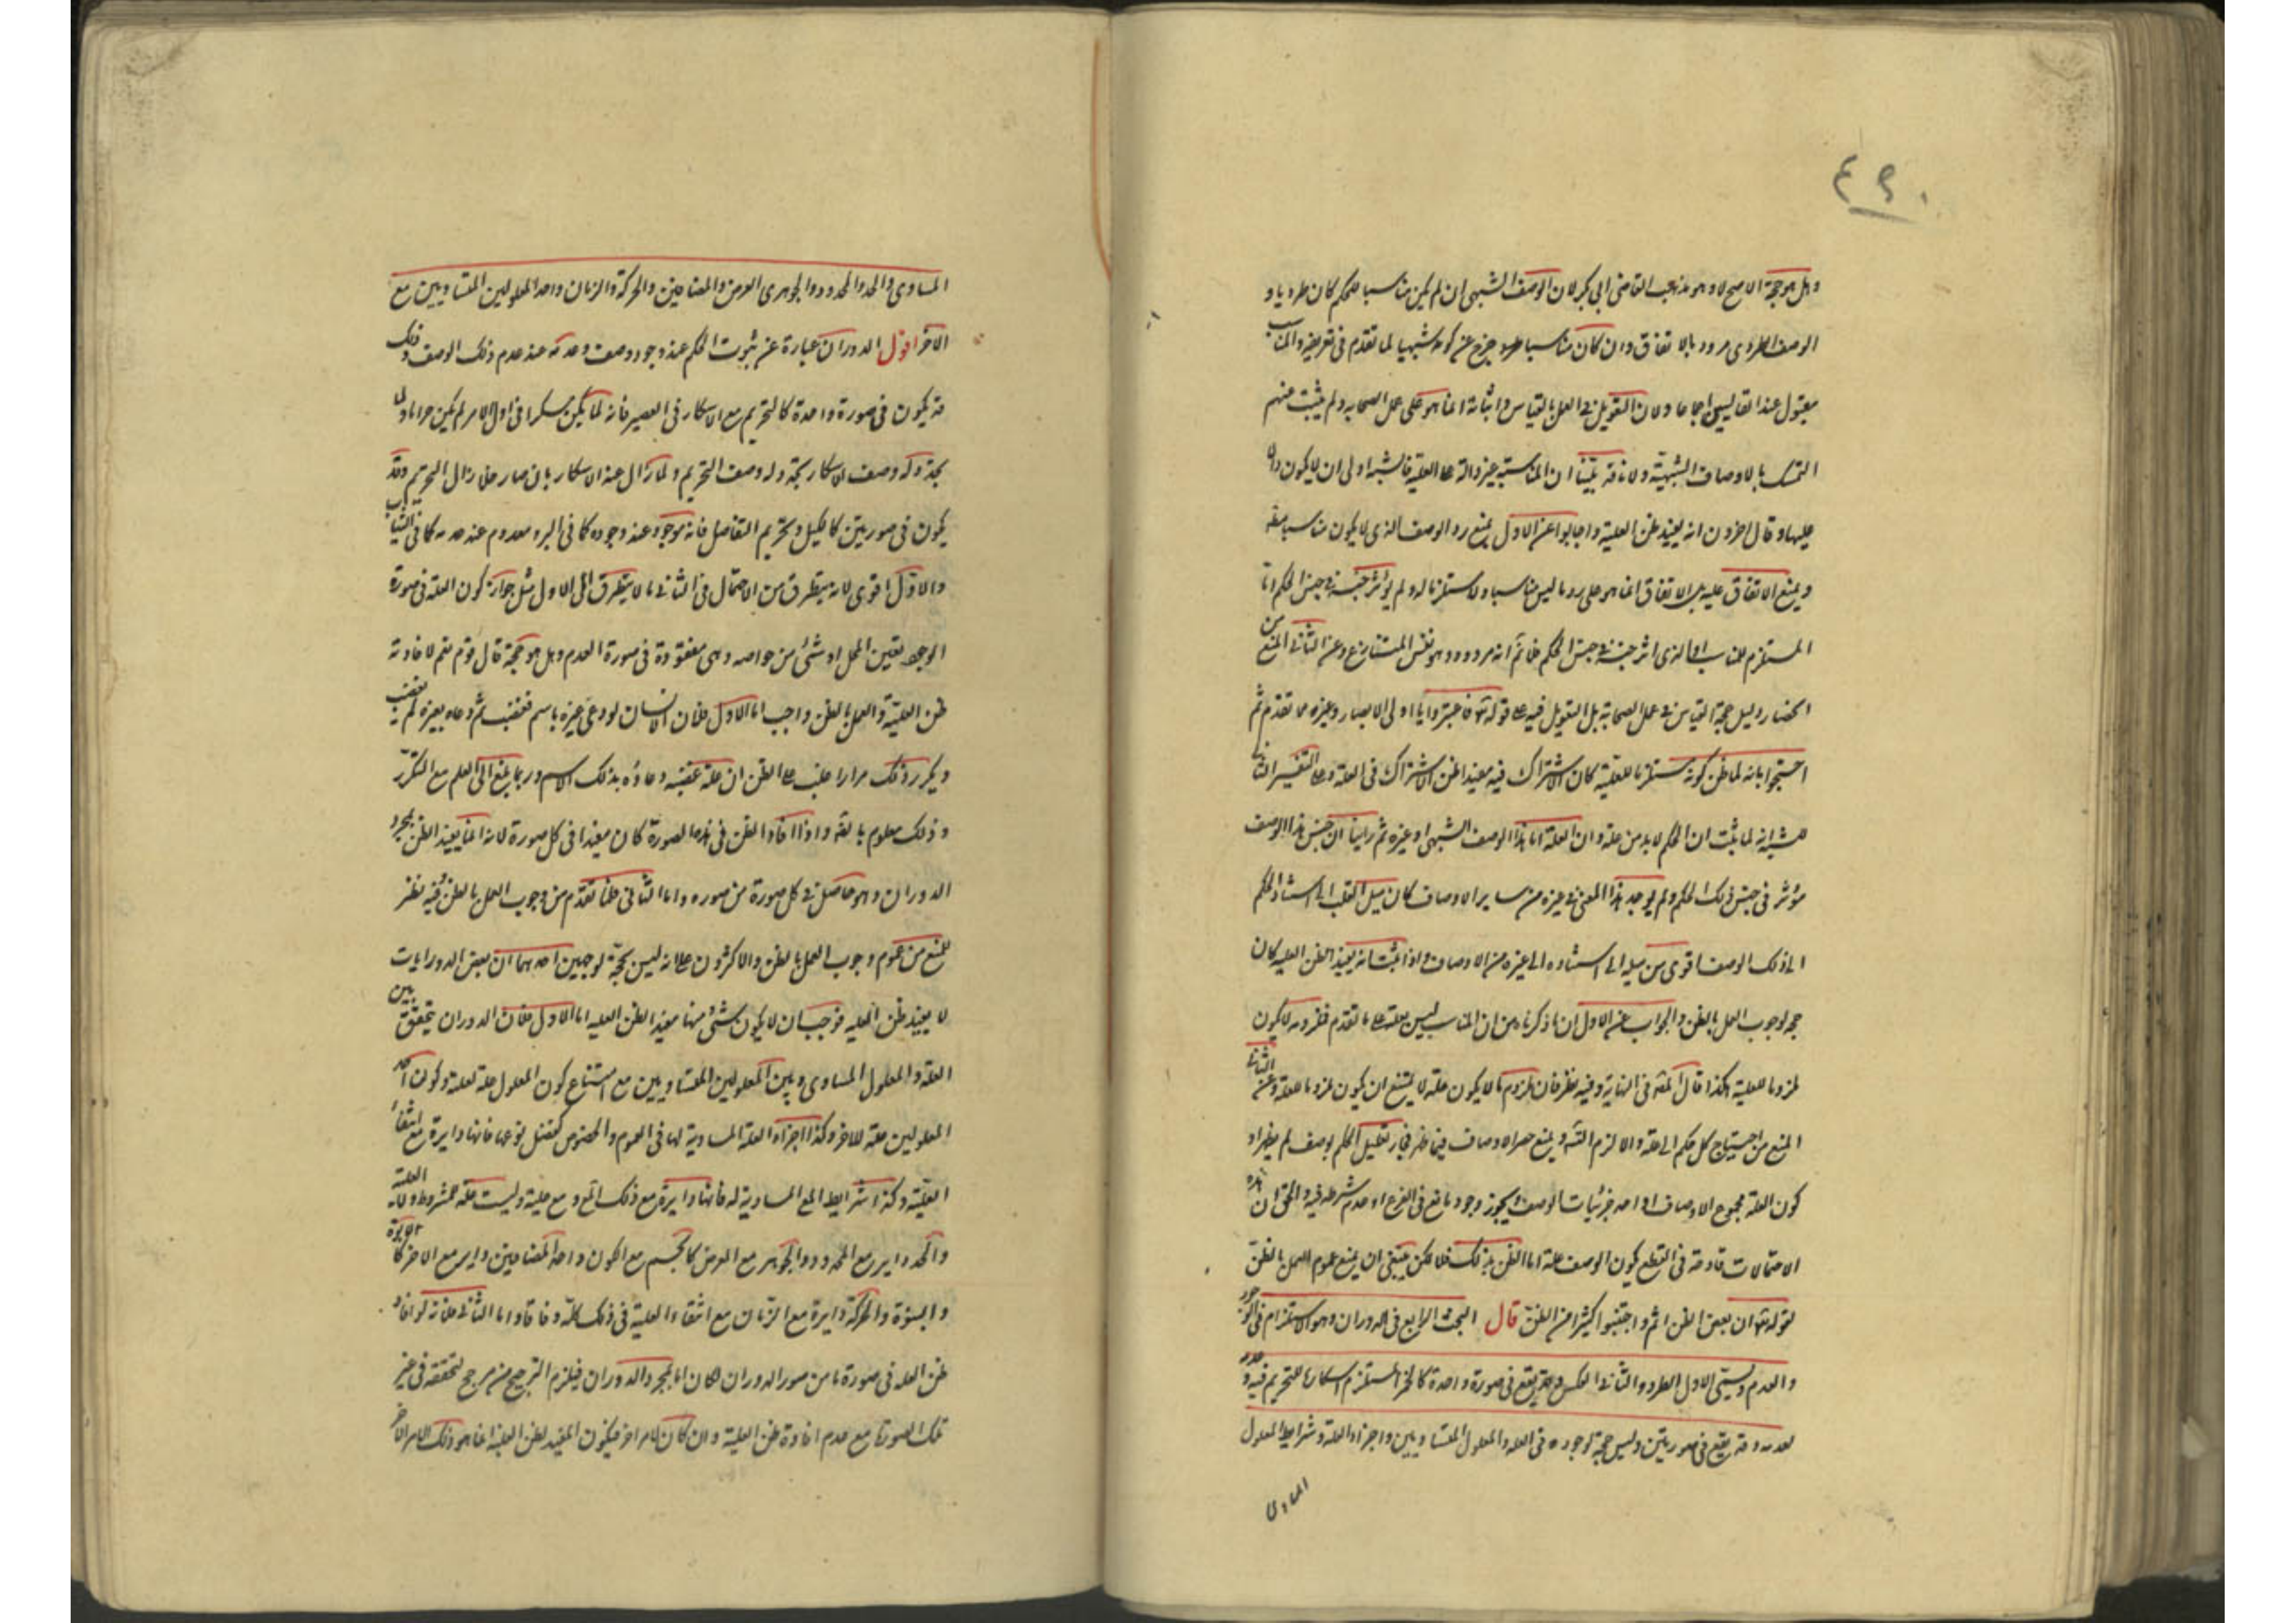 ٤٩٠
وهل هو حجة الاصح لا وهو مذهب القاضي ابي بكر لان الوصف الشبهي ان لم يكن مناسبا للحكم كان طرديا و
الوصف الطردي مردود بالاتفاق وان كان مناسبا خرج عن كونه شبهيا لما تقدم في تعريفه والمناسب
مقبول عند القايسين اجماعا ولان التعويل في العمل بالقياس واثباته انما هو على عمل الصحابه ولم يثبت عنهم
التمسك بالاوصاف الشبهية ولانا قد بينا ان المناسبة غير دالة على العلية فالشبه اولى ان لا يكون دالا
عليها وقال اخرون انه يفيد ظن العلية واجابوا عن الاول بمنع رد الوصف الذي لا يكون مناسبا
ويمنع الاتفاق عليه بل الاتفاق انما هو على رد ما ليس مناسبا ولا مستلزما له ولم يؤثر جنسه في جنس الحكم اما
المستلزم للمناسب او الذي اثر جنسه في جنس الحكم فلا نم انه مردود وهو نفس المتنازع وعن الثاني المنع من
انحصار دليل حجة القياس في عمل الصحابة بل التعويل فيه على قوله تع فاعتبروا يا اولى الابصار وغيره مما تقدم ثم
احتجوا بانه لما ظن كونه مستلزما للعلية كان الاشتراك فيه مفيدا ظن الاشتراك في العلة وعلى التفسير الثاني
للشبه انه لما ثبت ان الحكم لا بد من علة وان العلة اما هذا الوصف الشبهي او غيره ثم راينا ان جنس هذا الوصف
مؤثر في جنس ذلك الحكم ولم يوجد هذا المعنى في غيره من ساير الاوصاف كان ميل القلب الى استناد الحكم
الى ذلك الوصف اقوى من ميله الى استناده الى غيره من الاوصاف واذا ثبت انه يفيد الظن العليه كان
حجه لوجوب العمل بالظن والجواب عن الاول ان ما ذكرناه من ان المناسب ليس بعلة على ما تقدم فملزومه لا يكون
ملزوما للعلية هكذا قال المص في النهاية وفيه نظر فان ملزوم ما لا يكون علة لا يمتنع ان يكون ملزوما للعلة وعن الثاني
المنع من احتياج كل حكم الى علة والا لزم التس ويمنع حصر الاوصاف فيما ظهر فجاز تعليل الحكم بوصف لم يظهر او
كون العلة مجموع الاوصاف او احد جزئيات الوصف ويجوز وجود مانع في الفرع او عدم شرط فيه والحق ان هذه
الاحتمالات قادحة في القطع بكون الوصف علة اما الظن بذلك فلا لكن ينبغي ان يمنع عموم العمل بالظن
لقوله تع ان بعض الظن اثم واجتنبوا كثيرا من الظن قال البحث الرابع في الدوران وهو الاستلزام في الوجود
والعدم ويسمى الاول الطرد والثاني العكس وقد يقع في صورة واحدة كالخمر المستلزم اسكارها للتحريم فيه وعدمه
لعدمه وقد يقع في صورتين وليس حجة لوجوده في العلة والمعلول المتساويين واجزاء العلة وشرايط المعلول
المساوي
المساوي والحد والمحدود والجوهر والعرض والمضافين والحركة والزمان واحد المعلولين المتساويين مع
الاخر اقول الدوران عبارة عن ثبوت الحكم عند وجود وصف وعدمه عند عدم ذلك الوصف وذلك
قد يكون في صورة واحدة كالتحريم مع الاسكار في العصير فانه لما لم يكن مسكرا في اول الامر لم يكن حراما ولما
تجدد له وصف الاسكار تجدد له وصف التحريم ولما زال عنه الاسكار بان صار خلا زال التحريم وقد
يكون في صورتين كالكيل وتحريم التفاضل فانه موجود عند وجوده كما في البر ومعدوم عند عدمه كما في الثياب
والاول اقوى لانه يتطرق من الاحتمال في الثاني ما لا يتطرق الى الاول مثل جواز كون العلة في صورة
الوجود تعين المحل او شئ من خواصه وهي مفقودة في صورة العدم وهل هو حجة قال قوم نعم لافادته
ظن العلية والعمل بالظن واجب اما الاول فلان الانسان لو دعى غيره باسم فغضب ثم دعاه بغيره لم يغضب
ويكرر ذلك مرارا غلب على الظن ان علة غضبه دعاؤه بذلك الاسم وربما بلغ الى العلم مع التكرر
وذلك معلوم بالضرورة واذا افاد الظن في هذه الصورة كان مفيدا في كل صورة لانه انما يفيد الظن لمجرد
الدوران وهو حاصل في كل صورة من صوره واما الثاني فلما تقدم من وجوب العمل بالظن وفيه نظر
للمنع من عموم وجوب العمل بالظن والاكثرون على انه ليس بحجة لوجهين احدهما ان بعض الدورانات
لا يفيد ظن العليه فوجب ان لا يكون شئ منها مفيدا لظن العليه اما الاول فلان الدوران يتحقق بين
العلة والمعلول المساوي وبين المعلولين المتساويين مع امتناع كون المعلول علة لعلته وكون احد
المعلولين علة للاخر وكذا اجزاء العلة المساوية لها في العموم والخصوص كفصل نوعها فانها دايرة مع انتفاء
العلية وكذا شرايط المساوية له فانها دايرة مع ذلك مع عليته وليست علة للمشروط ولان العلة
والحد داير مع المحدود والجوهر مع العرض كالجسم مع الكون واحد المضافين داير مع الاخر كالابوة
والبنوة والحركة دايرة مع الزمان مع انتفاء العلية في ذلك كله وفاقا واما الثاني فلانه لو افاد
ظن العلة في صورة ما من صور الدوران لكان اما لمجرد الدوران فيلزم الترجيح من غير مرجح لتحققه في غير
تلك الصورة مع عدم افادة ظن العلية وان كان لامر اخر فيكون المفيد لظن العلية انما هو ذلك الامر الاخر